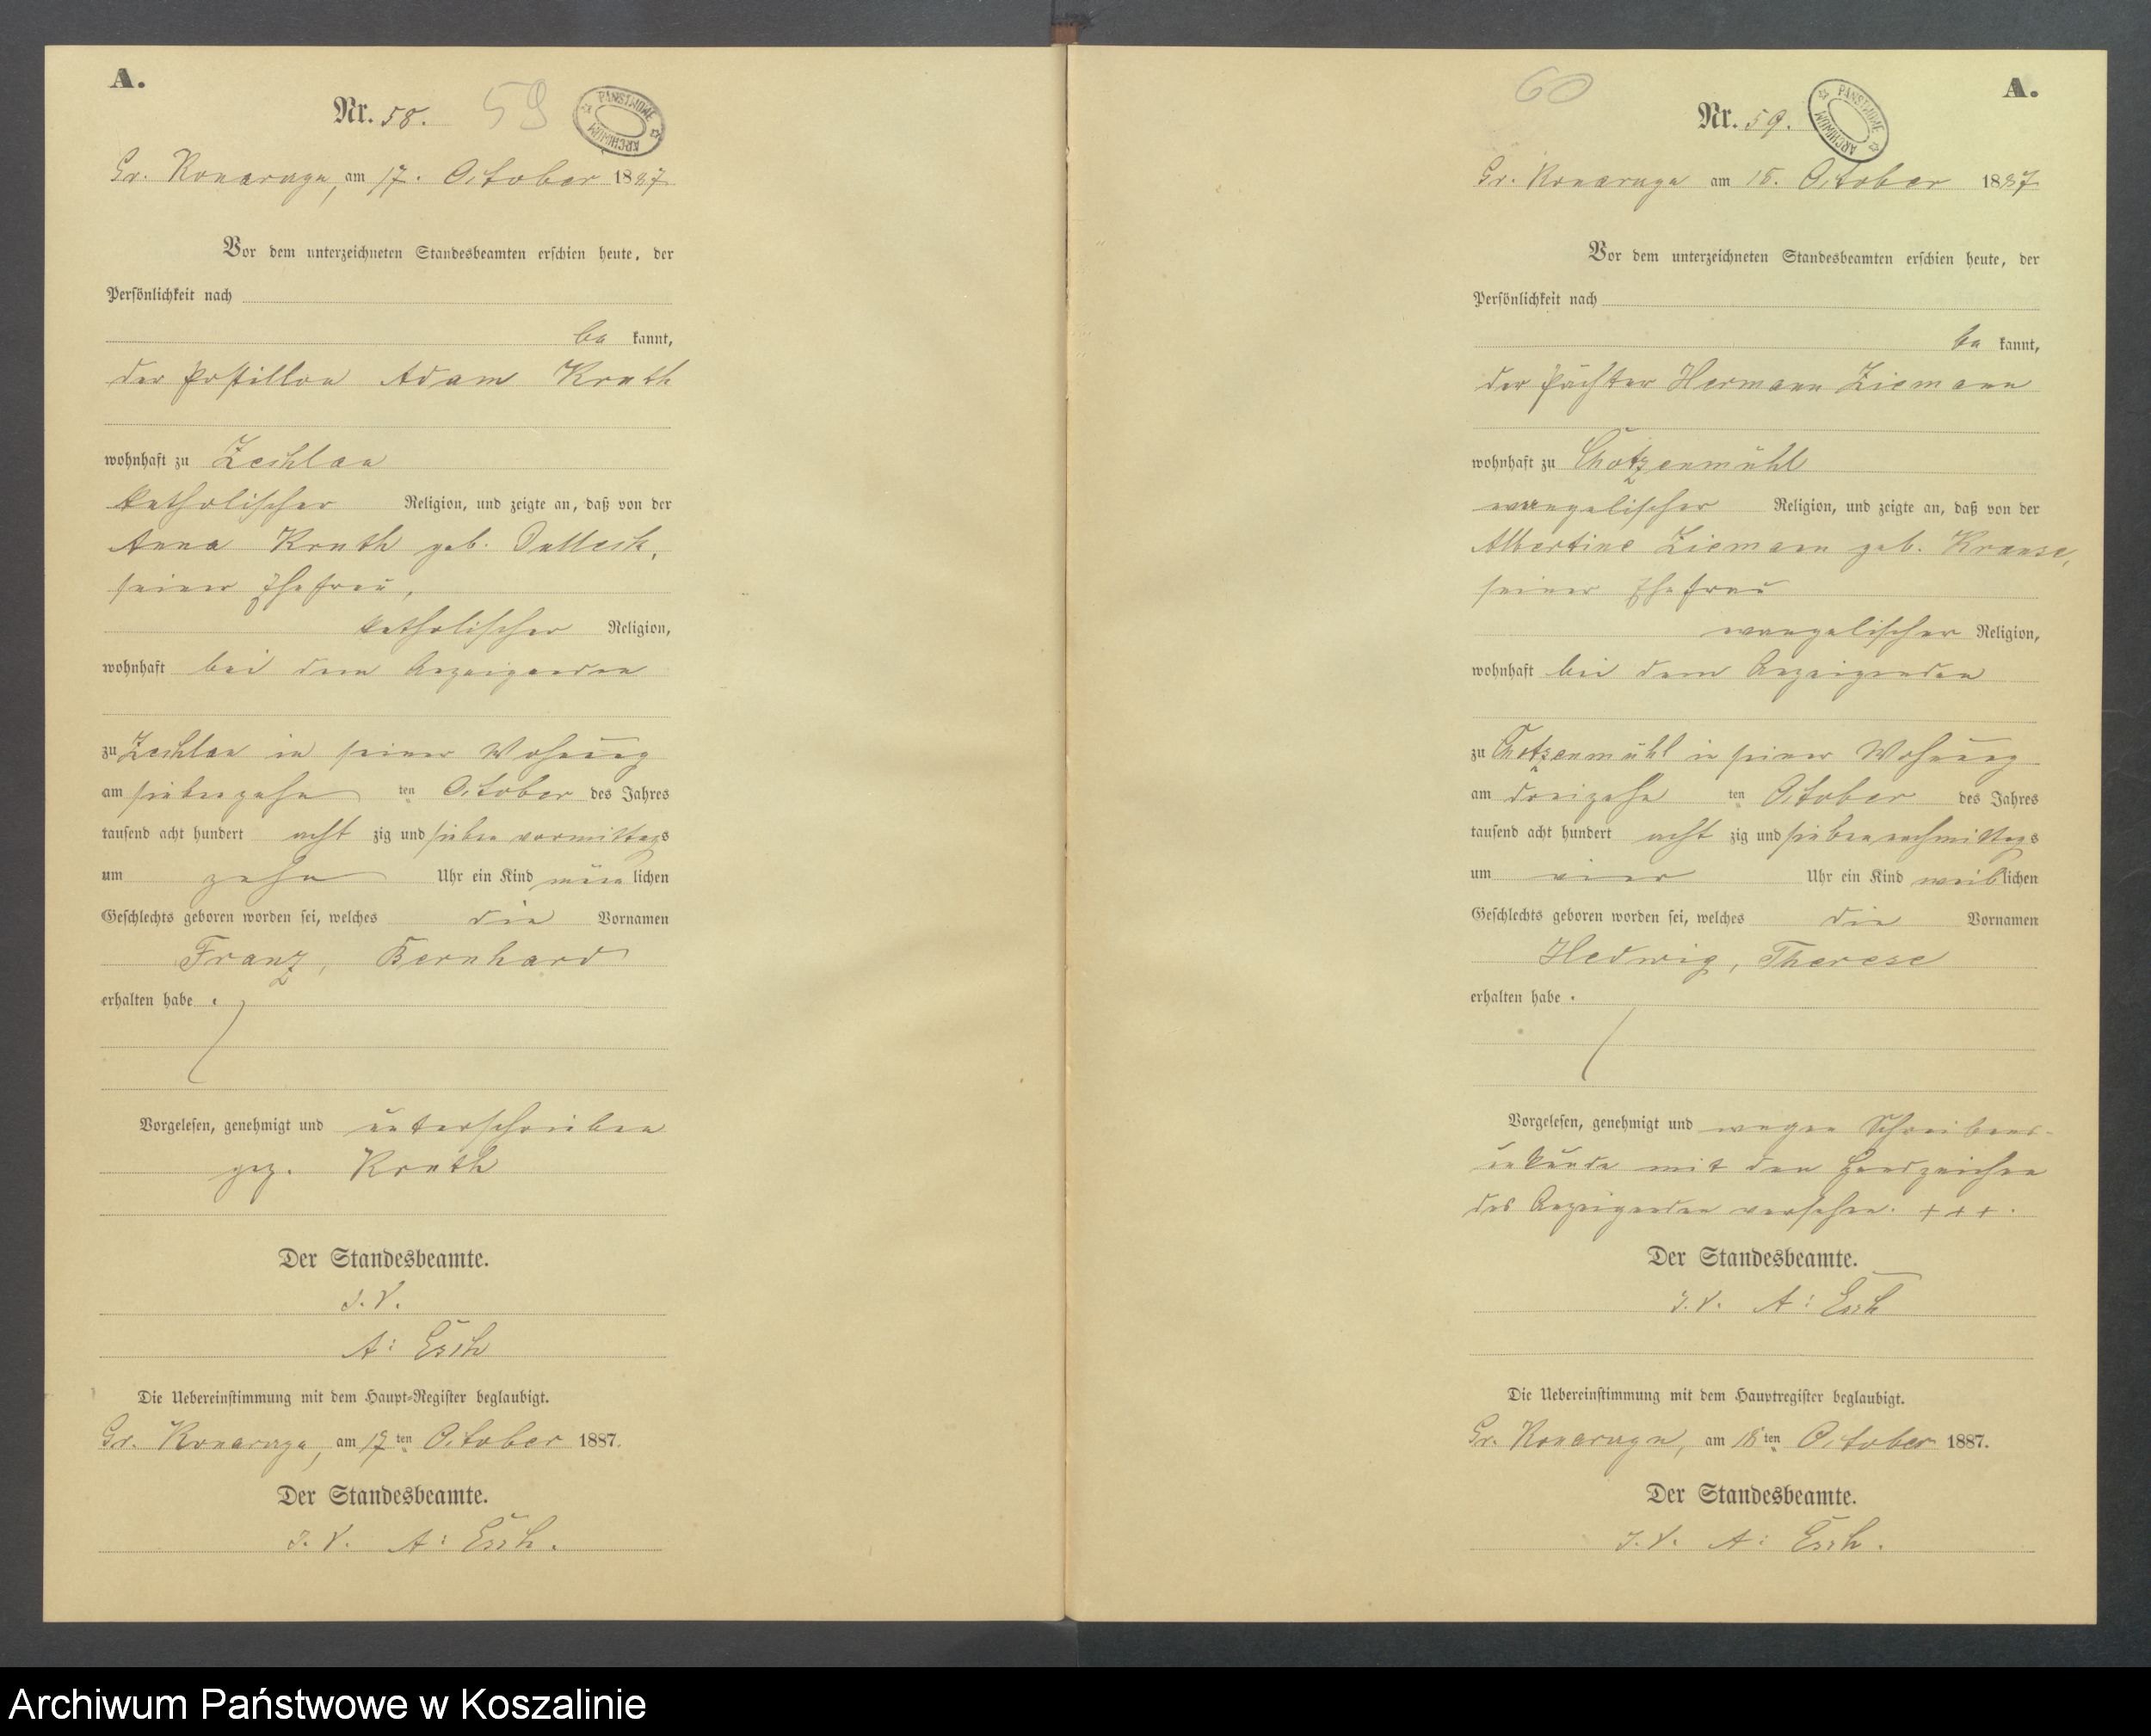 A.
Nr. 58.
59
PAŃSTWOWE ARCHIWUM
Gr. Konarzyn, am 17. October 1887
Vor dem unterzeichneten Standesbeamten erschien heute, der
Persönlichkeit nach
be kannt,
der Postillon Adam Knuth
wohnhaft zu Zechlau
katholischer Religion, und zeigte an, daß von der
Anna Knuth geb.
seiner Ehefrau,
katholischer Religion,
wohnhaft bei dem Anzeigenden
zu Zechlau in seiner Wohnung
am siebenzehn ten October des Jahres
tausend acht hundert acht zig und sieben vormittags
um zehn Uhr ein Kind männ lichen
Geschlechts geboren worden sei, welches die Vornamen
Franz, Bernhard
erhalten habe.
Vorgelesen, genehmigt und unterschrieben
gez. Knuth
Der Standesbeamte.
I. V.
A: Esch
Die Uebereinstimmung mit dem Haupt-Register beglaubigt.
Gr. Konarzyn, am 17ten October 1887.
Der Standesbeamte.
I. V. A: Esch.
60
A.
Nr. 59.
PAŃSTWOWE ARCHIWUM
Gr. Konarzyn am 18. October 1887
Vor dem unterzeichneten Standesbeamten erschien heute, der
Persönlichkeit nach
be kannt,
der Pächter Hermann Ziemann
wohnhaft zu Chotzenmühl
evangelischer Religion, und zeigte an, daß von der
Albertine Ziemann geb. Krause,
seiner Ehefrau
evangelischer Religion,
wohnhaft bei dem Anzeigenden
zu Chotzenmühl in seiner Wohnung
am dreizehn ten October des Jahres
tausend acht hundert acht zig und sieben nachmittags
um vier Uhr ein Kind weib lichen
Geschlechts geboren worden sei, welches die Vornamen
Hedwig, Therese
erhalten habe.
Vorgelesen, genehmigt und wegen Schreibens-
unkunde mit den Handzeichen
des Anzeigenden versehen. + + +.
Der Standesbeamte.
I. V. A: Esch
Die Uebereinstimmung mit dem Hauptregister beglaubigt.
Gr. Konarzyn, am 18ten October 1887.
Der Standesbeamte.
I. V. A: Esch.
Archiwum Państwowe w Koszalinie